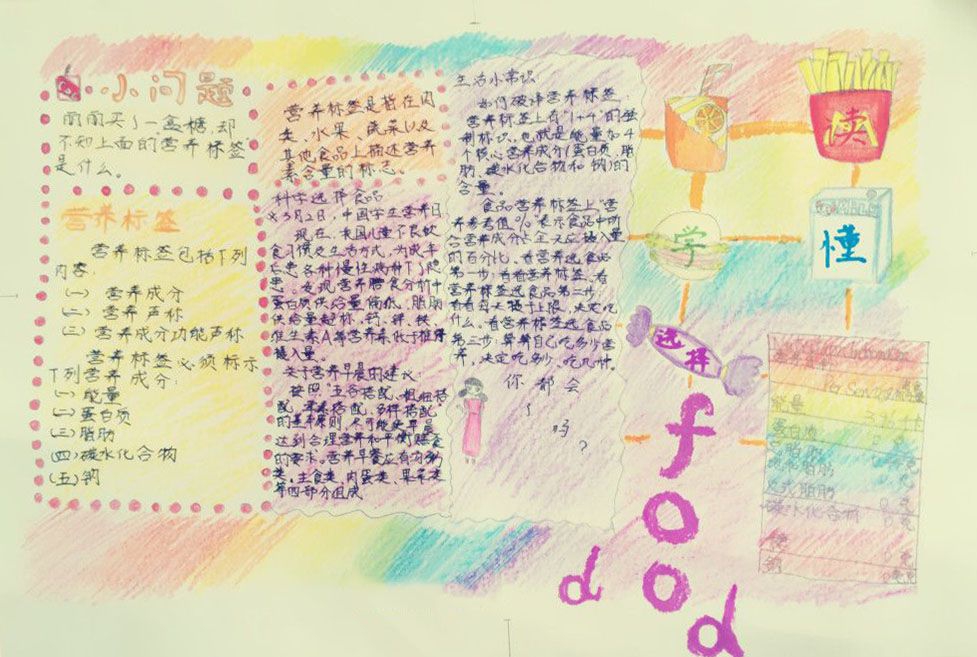 小问题
雨雨买了一盒糖,却
不知上面的营养标签
是什么。
营养标签
营养标签包括下列
内容:
(一) 营养成分
(二) 营养声称
(三) 营养成分功能声称
营养标签必须标示
下列营养成分:
(一) 能量
(二) 蛋白质
(三) 脂肪
(四) 碳水化合物
(五) 钠
营养标签是指在肉
类、水果、蔬菜以及
其他食品上描述营养
素含量的标志。
科学选择食品
5月2日,中国学生营养日
现在,我国儿童不良饮
食习惯及生活方式,为成年
后患各种慢性病种下了隐
患。发现营养膳食分析中
蛋白质供给量偏低,脂肪
供给量超标,钙、锌、铁、
维生素A等营养素低于推荐
摄入量。
关于营养早晨的建议:
按照"五谷搭配、粗细搭
配、荤素搭配、多样搭配
的基本原则,尽可能使早品
达到合理营养和平衡膳食
的要求。营养早餐应有肉奶
类、主食类、肉蛋类、果菜类
等四部分组成
生活小常识
如何破译营养标签,
营养标签上有"1+4"的强
制标识,也就是能量加4
个核心营养成分(蛋白质、脂
肪、碳水化合物和钠)的
含量。
食品营养标签上"营
养参考值%"表示食品中所
含营养成分占全天应摄入量
的百分比。看营养选食品
第一步:看看营养标签。看
营养标签选食品第二步:
看看每天摄于上限,决定吃
什么。看营养标签选食品
第三步:算算自己吃多少营
养,决定吃多少、吃几种。
你都会
了
吗
?
读
学
懂
选择
food
d
能量
蛋白质
脂肪
反式脂肪
碳水化合物
钠